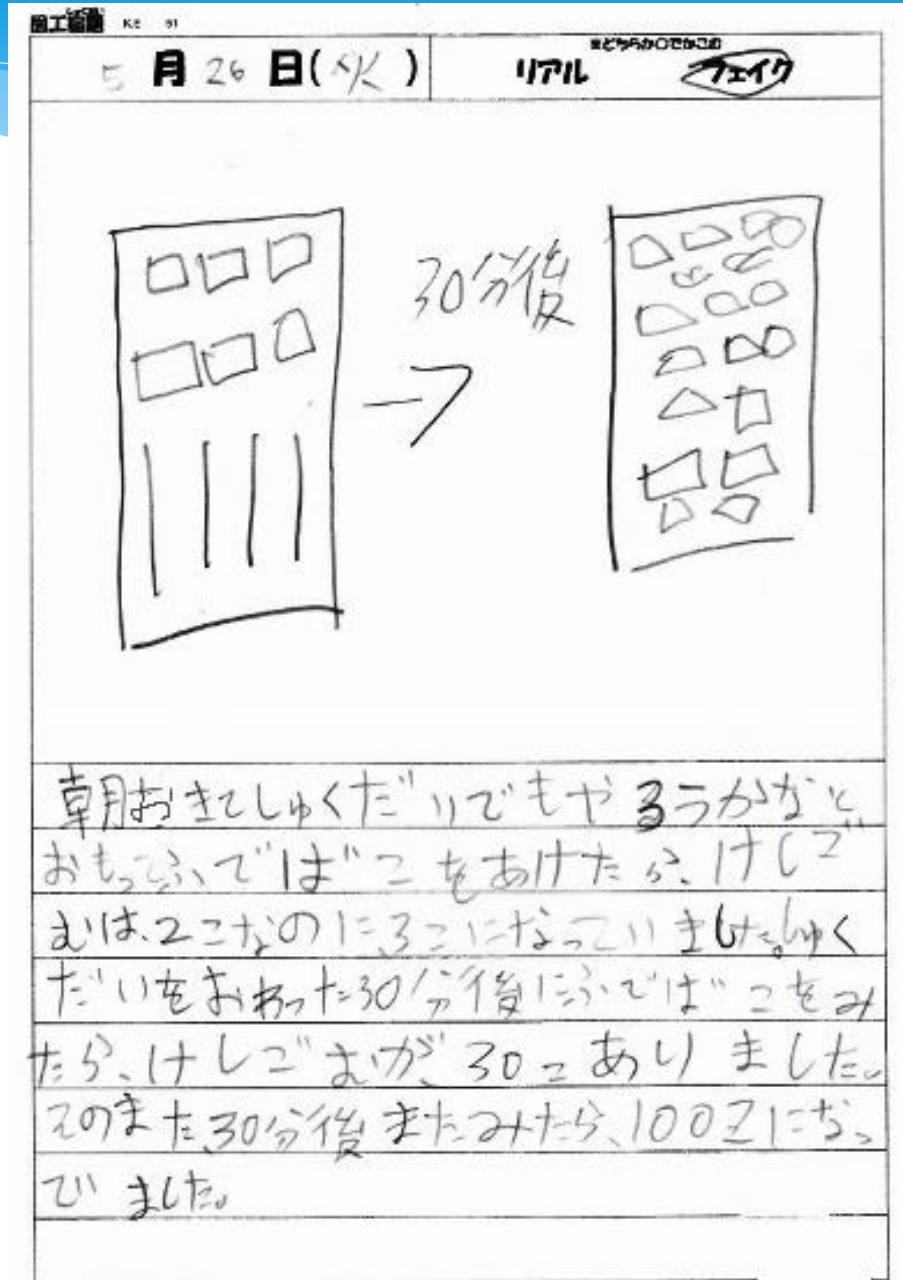 図工宿題
5月26日(火)
※どちらか○でかこむ
リアル フェイク
30分後
朝おきてしゅくだいでもやるうかなと
おもっふでばこをあけたら、けしご
むは、2こなのに、3こになっていました。しゅく
だいをおわった30分後にふでばこをみ
たら、けしごむが、30こありました。
そのまた、30分後またみたら、100こになっ
でいました。